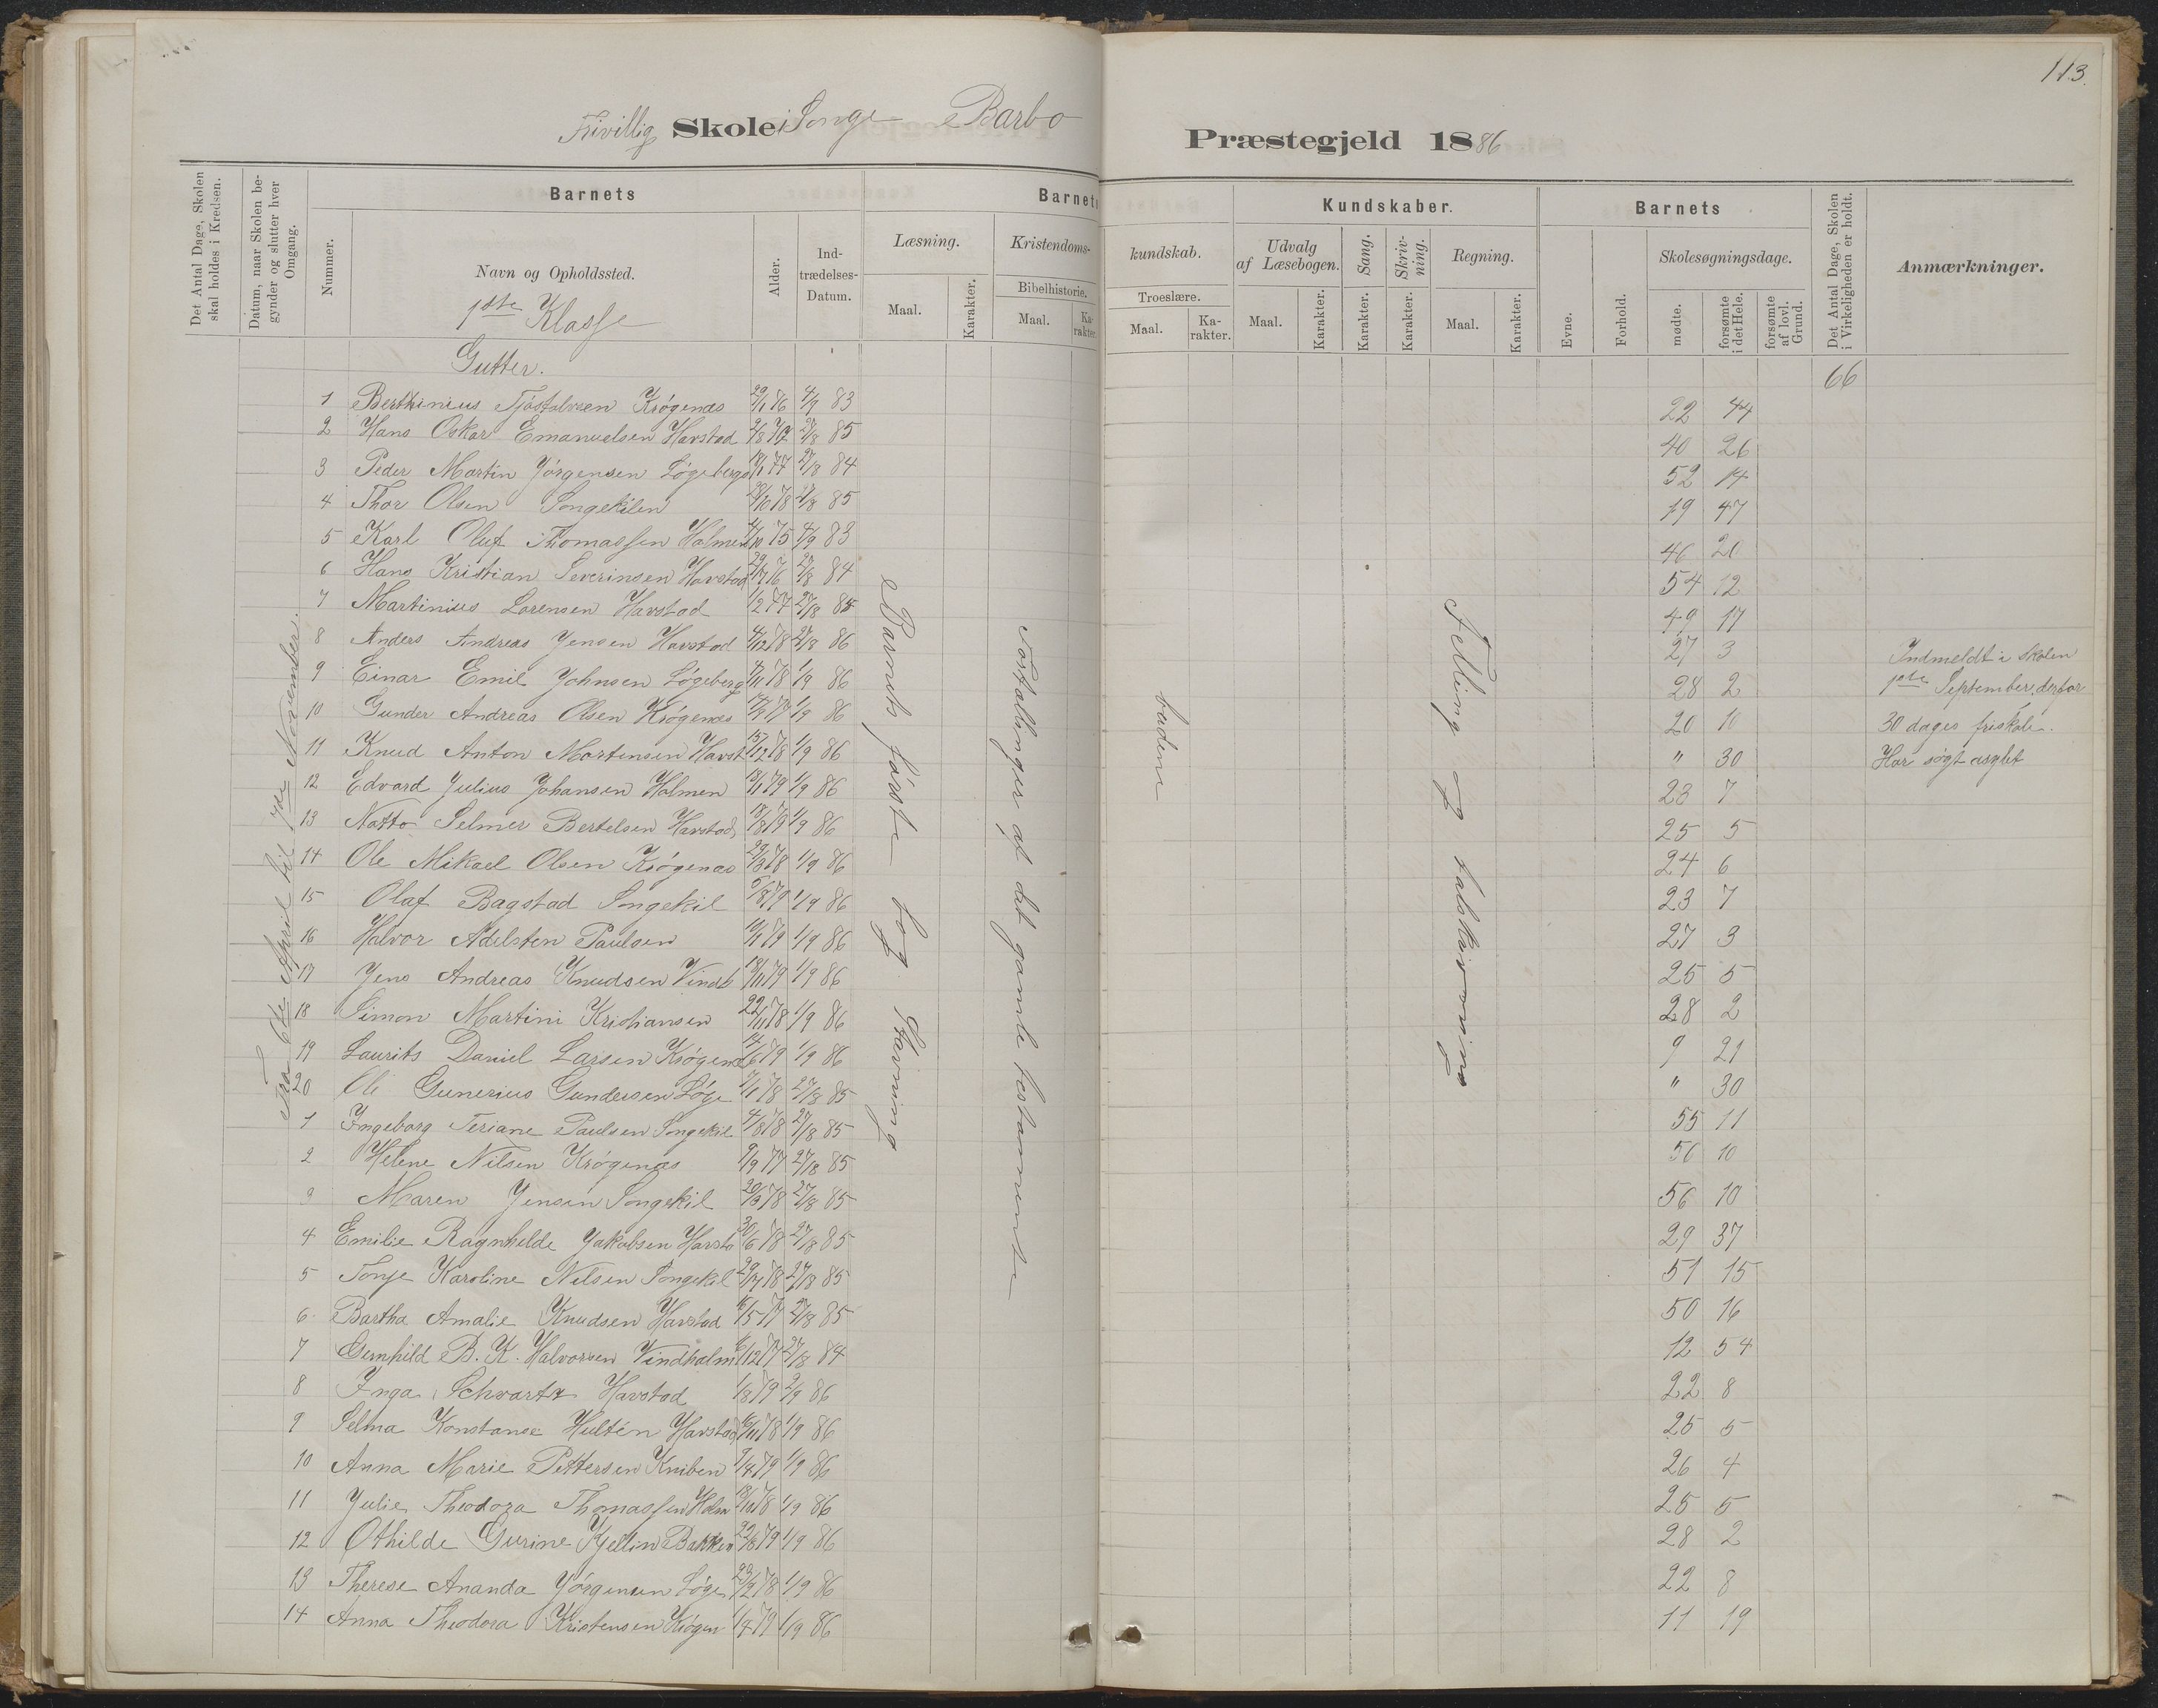 113.
Frivillig Skole i Songe Barbo Præstegjeld 1886
Det Antal Dage, Skolen skal holdes i Kredsen.
Datum, naar Skolen begynder og slutter hver Omgang.
Barnets
Nummer.
Navn og Opholdssted.
Alder.
Ind-
trædelses-
Datum.
Barnets
Læsning.
Maal.
Karakter.
Kristendoms-
Bibelhistorie.
Maal.
Ka-
rakter.
kundskab.
Troeslære.
Maal.
Ka-
rakter.
Kundskaber.
Udvalg
af Læsebogen.
Maal.
Karakter.
Sang.
Karakter.
Skriv-
ning.
Karakter.
Regning.
Maal.
Karakter.
Barnets
Evne.
Forhold.
Skolesøgningsdage.
mødte.
forsømte
i det Hele.
forsømte
af lovl.
Grund.
Det Antal Dage, Skolen
i Virkeligheden er holdt.
Anmærkninger.
1ste Klasse
Gutter.
66
1 Berthinius Tjøstolvsen Krøgenæs 29/1 76 4/9 83 22 44
2 Hans Oskar Emanuelsen Havstad 27/8 85 40 26
3 Peder Martin Jørgensen Løgeberg 77 27/8 84 52 14
4 Thor Olsen Songekilen 78 27/8 85 19 47
5 Karl Oluf Thomassen Holmen 75 4/9 83 46 20
6 Hans Kristian Severinsen Havstad 76 27/8 84 54 12
7 Martinius Lorensen Havstad 1/2 77 27/8 85 49 17
8 Anders Andreas Jensen Havstad 4/12 78 27/8 86 27 3 Indmeldt i Skolen
9 Einar Emil Johnsen Løgeberg 78 1/9 86 28 2 1ste September, derfor
10 Gunder Andreas Olsen Krøgenæs 1/9 86 20 10 30 dages friskole.
11 Knud Anton Mortensen Havst 78 1/9 86 " 30 Har søgt asylet
12 Edvard Julius Johansen Holmen 79 1/9 86 23 7
13 Natto Selmer Bertelsen Havstad 18/8 79 1/9 86 25 5
14 Ole Mikael Olsen Krøgenæs 78 1/9 86 24 6
15 Olaf Bagstad Songekil 5/8 79 1/9 86 23 7
16 Halvor Adelsten Paulsen 79 1/9 86 27 3
17 Jens Andreas Knudsen Vindh 79 1/9 86 25 5
18 Simon Martini Kristiansen 22/11 78 1/9 86 28 2
19 Laurits Daniel Larsen Krøgenæ 79 1/9 86 9 21
20 Ole Gunerius Gundersen Løge 78 27/8 85 " 30
1 Ingeborg Teriane Paulsen Songekil 4/8 78 27/8 85 55 11
2 Helene Nilsen Krøgenæs 9/9 77 27/8 85 56 10
3 Maren Jensen Songekil 78 27/8 85 56 10
4 Emilie Ragnhilde Jakobsen Havsta 30/6 78 27/8 85 29 37
5 Tonje Karoline Nilsen Songekil 78 27/8 85 51 15
6 Bartha Amalie Knudsen Havstad 77 27/8 85 50 16
7 Gernhild B. K. Halvorsen Vindholm 77 27/8 84 12 54
8 Inga Schvartz Havstad 1/8 79 86 22 8
9 Selma Konstanse Hultén Havstad 78 1/9 86 25 5
10 Anna Marie Pettersen Kniben 79 1/9 86 26 4
11 Julie Theodora Thomassen Holm 78 1/9 86 25 5
12 Othilde Gurine Kjellin Bakken 79 1/9 86 28 2
13 Therese Ananda Jørgensen Løge 78 1/9 86 22 8
14 Anna Theodora Kristensen Krøgen 79 1/9 86 11 19
Fra 6te April til 7de November.
Barnets første bog. Stavning
Fortællinger af det gamle testamente
Tælling og talskrivning